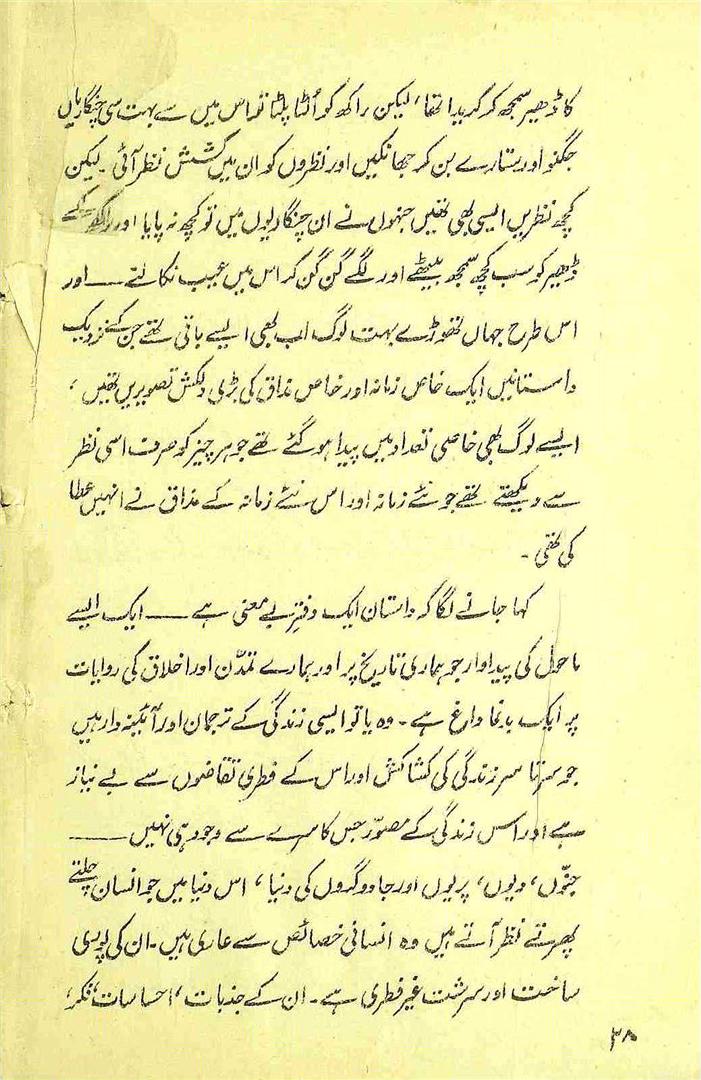 کا ڈھیر سمجھ کر کریدا تھا، لیکن راکھ کو اُلٹا پلٹا تو اس میں سے بہت سی چنگاریاں
جگنو اور ستارے بن کر جھانکیں اور نظروں کو ان میں کشش نظر آئی ۔ لیکن
کچھ نظریں ایسی بھی تھیں جنہوں نے ان چنگاریوں میں تو کچھ نہ پایا اور راکھ کے
ڈھیر کو سب کچھ سمجھ بیٹھے اور لگے گن گن کر اس میں عیب نکالنے —— اور
اس طرح جہاں تھوڑے بہت لوگ اب بھی ایسے باقی تھے جن کے نزدیک
داستانیں ایک خاص زمانہ اور خاص مذاق کی بڑی دلکش تصویریں تھیں،
ایسے لوگ بھی خاصی تعداد میں پیدا ہو گئے تھے جو ہر چیز کو صرف اسی نظر
سے دیکھتے تھے جو نئے زمانہ اور اس نئے زمانہ کے مذاق نے انہیں عطا
کی تھی ۔
کہا جانے لگا کہ داستان ایک دفترِ بے معنی ہے —— ایک ایسے
ماحول کی پیداوار جو ہماری تاریخ پر اور ہمارے تمدّن اور اخلاق کی روایات
پر ایک بدنما داغ ہے ۔ وہ یا تو ایسی زندگی کے ترجمان اور آئینہ دار ہیں
جو سرتا سر زندگی کی کشاکش اور اس کے فطری تقاضوں سے بے نیاز
ہے اور اس زندگی کے مصوّر جس کا سرے سے وجود ہی نہیں ——
جنّوں، دیوں، پریوں اور جادوگروں کی دنیا، اس دنیا میں جو انسان چلتے
پھرتے نظر آتے ہیں وہ انسانی خصائص سے عاری ہیں ۔ ان کی پوری
ساخت اور سرشت غیر فطری ہے ۔ ان کے جذبات، احساسات، فکر،
۳۸